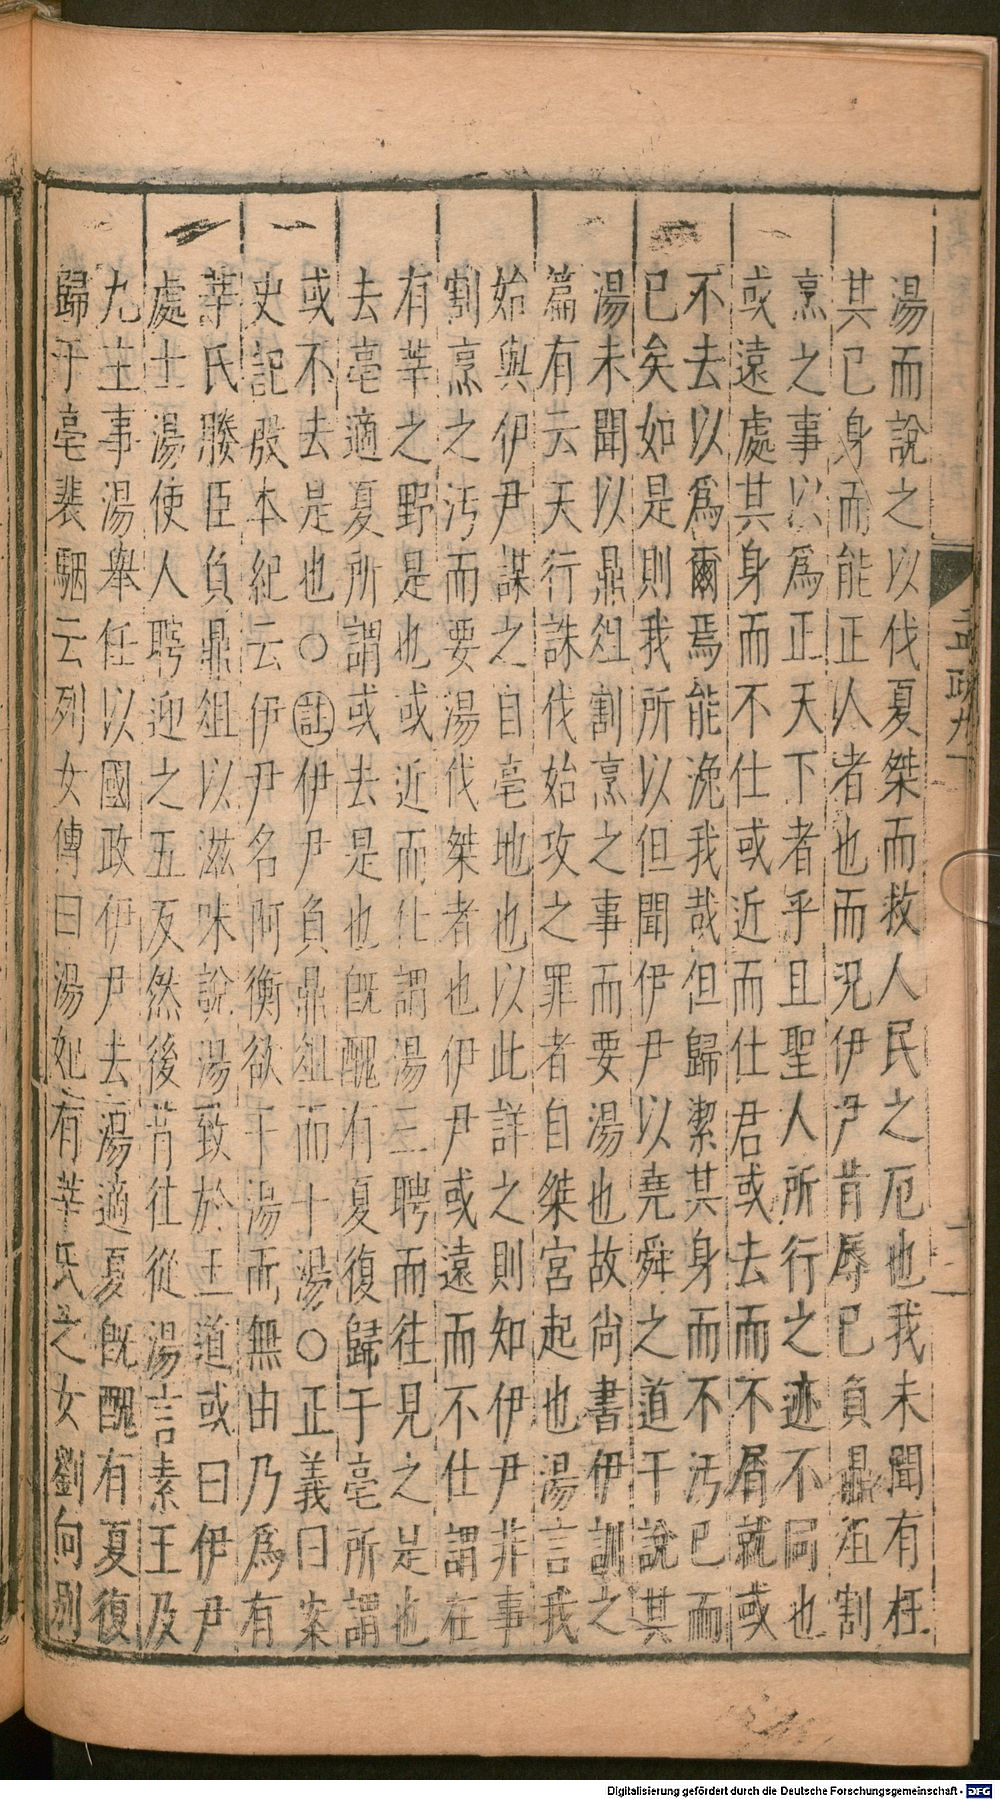 湯而說之以伐夏桀而救人民之厄也我未聞有枉
其已身而能正人者也而況伊尹肯辱已負鼎俎割
烹之事以爲正天下者乎且聖人所行之迹不同也
或遠處其身而不仕或近而仕君或去而不屑就或
不去以爲爾焉能浼我哉但歸潔其身而不污已而
已矣如是則我所以但聞伊尹以堯舜之道干說其
湯未聞以鼎俎割烹之事而要湯也故尚書伊訓之
篇有云天行誅伐始攻之罪者自桀宮起也湯言我
始與伊尹謀之自亳地也以此詳之則知伊尹非事
割烹之污而要湯伐桀者也伊尹或遠而不仕謂在
有莘之野是也或近而仕謂湯三聘而往見之是也
去亳適夏所謂或去是也既醜有夏復歸于亳所謂
或不去是也○註伊尹負鼎俎而干湯○正義曰案
史記殷本紀云伊尹名阿衡欲干湯而無由乃爲有
莘氏媵臣負鼎俎以滋味說湯致於王道或曰伊尹
處士湯使人聘迎之五反然後肯往從湯言素王及
九主事湯舉任以國政伊尹去湯適夏既醜有夏復
歸于亳裴駰云列女傳曰湯妃有莘氏之女劉向別
孟疏九
Digitalisierung gefördert durch die Deutsche Forschungsgemeinschaft - DFG